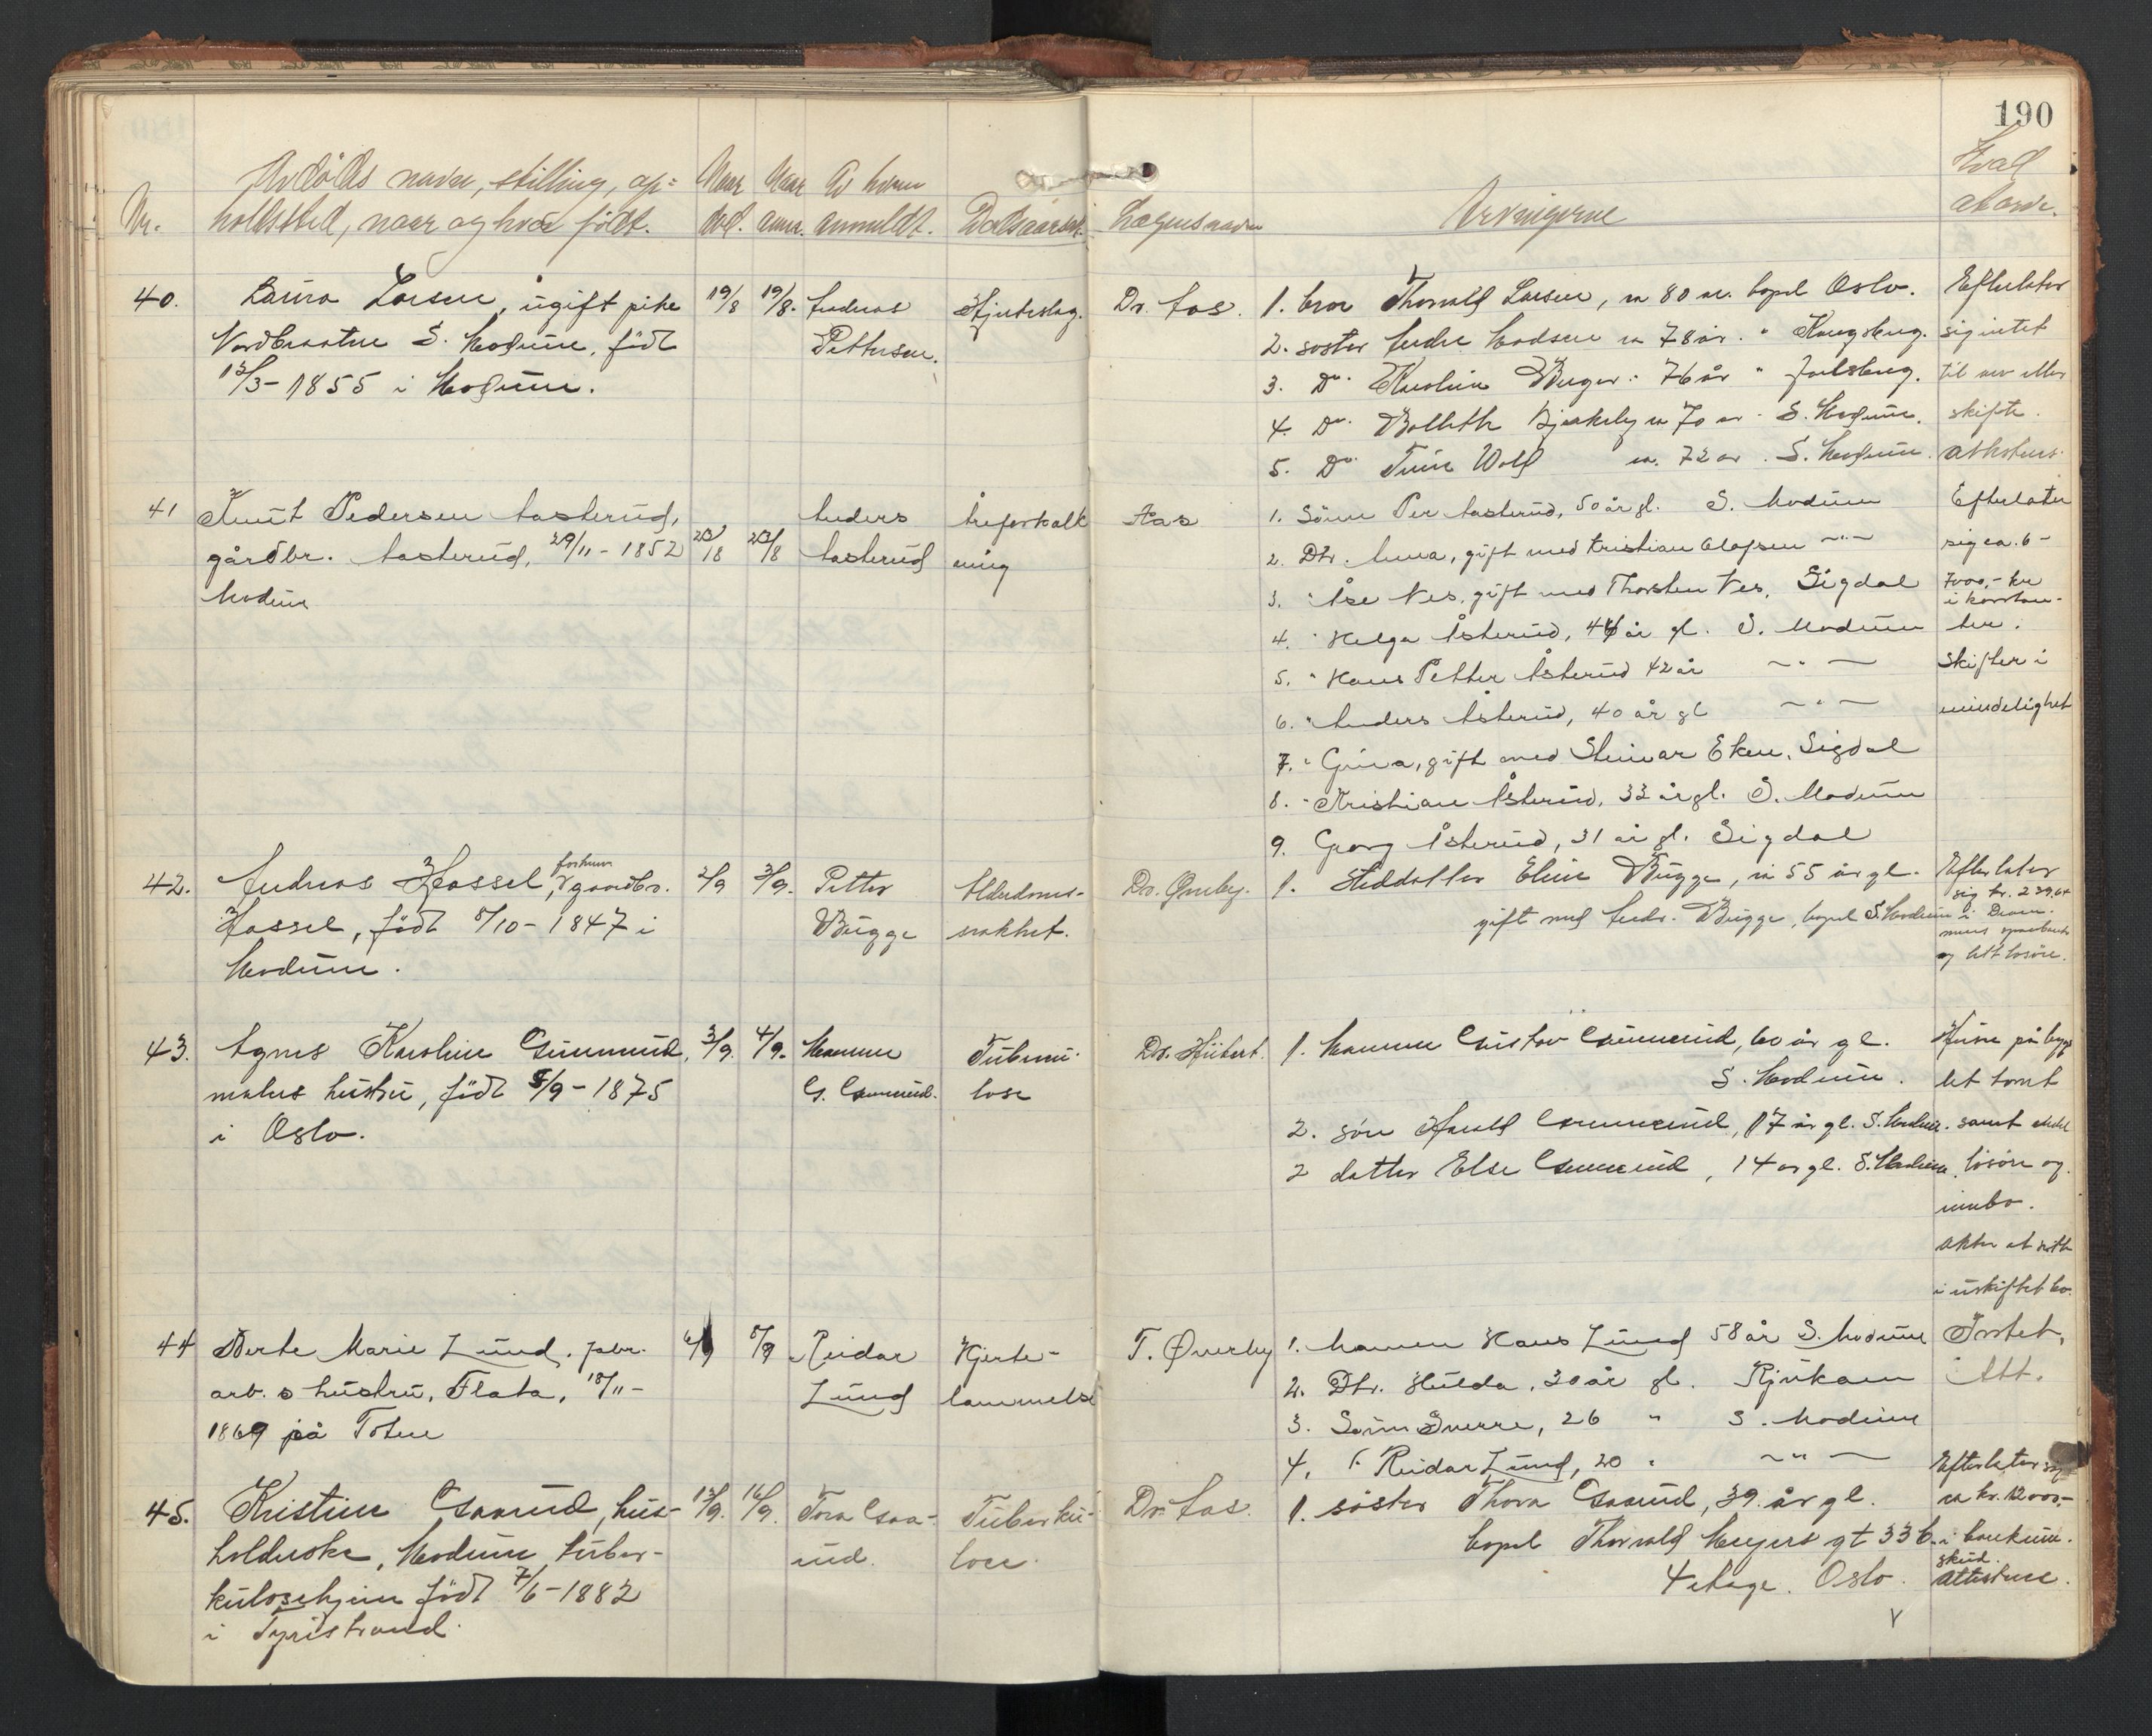 190
Avdødes navn, stilling, op= Naar Naar Av hvem Hvad
Nr. holdssted, naar og hvor født. død. anm. anmeldt. Dødsaarsak. Lægens navn Arvingerne
40. Laura Larsen, ugift pike 19/8 19/8. Andreas Hjerteslag. Dr. Aas. 1. bror Thorvald Larsen, ca 80 år. bopel Oslo. Efterlater
Nordbraaten S. Modum, født Pettersen. 2. søster Andre Madsen ca 78 år. " Kongsberg. sig intet
13/3-1855 i Modum. 3. Do. Karoline 76 år " til arv eller
4. Do. ca 70 år - S. Modum. skifte.
5. Do. ca. 72 år. S. Modum.
41 Knut Pedersen Aasterud, Anders Åreforkalk Aas 1. Sønn Per Aasterud, 50 år gl. S. Modum Efterlater
gårdbr. Aasterud, 29/11-1852 23/8 23/8 Aasterud ning 2. Dtr. Anna, gift med Kristian Olafsen —"— sig ca. 6-
Modum 3. " Åse Nes, gift med Thorsten Nes, Sigdal 7000,- kr
i kontan-
4. " Helga Åsterud, 44 år gl. S. Modum ter.
5. " Hans Petter Åsterud 42 år —"— Skifter i
6. " Anders Åsterud, 40 år gl —"— mindelighet
7. " Guna, gift med Steinar Eken, Sigdal
8. " Kristian Åsterud, 33 år gl. S. Modum
9. Georg Åsterud, 31 år gl. Sigdal
42. Andreas Hassel, forhenv. gaardbr. 2/9 3/9. Petter Alderdoms- Dr. Øverby. 1. Steddatter Eline Bugge, ca 55 år gl. Efterlater
sig kr. 239,64
Hassel, født 8/10-1847 i Bugge svakhet. gift med Andr. Bugge, bopel S. Modum i Dram-
mens sparebank
Modum. og litt løsøre.
43. Agnes Karoline Gunnerud, 3/9. 4/9. Mannen Tuberku- Dr. Hübert. 1. Mannen Gustav Gunnerud, 60 år gl. Huse på bygs
malers hustru, født 5/9-1875 G. Gunnerud. lose S. Modum. let tomt
i Oslo. 2. søn Harald Gunnerud, 17 år gl. S. Modum. samt endel
2 datter Else Gunnerud, 14 år gl. S. Modum. løsøre og
innbo.
Akter at sitte
i uskiftet bo.
44 Berte Marie Lund, fabr. 6/9 8/9 Reidar Hjerte- T. Øverby 1. Mannen Hans Lund 58 år S. Modum Intet,
arb.s hustru, Flata, 18/11- Lund lammelse 2. Dtr. Hulda, 30 år gl. Rjukan Att.
1869 på Toten 3. Sønn Sverre, 26 " S. Modum
4. " Reidar Lund, 20 " —"— Efterlater sig
45. Kristine Gaarud, hus- 15/9. 16/9. Tora Gaa- Tuberku- Dr. Aas. 1. søster Thora Gaarud, 39 år gl. ca kr. 12000,-
holderske, Modum tuber- rud. lose. bopel Thorvald Meyers gt 33 b. i bankinn-
skud.
kulosehjem født 7/6-1882 4 etage. Oslo.
i Tyristrand.